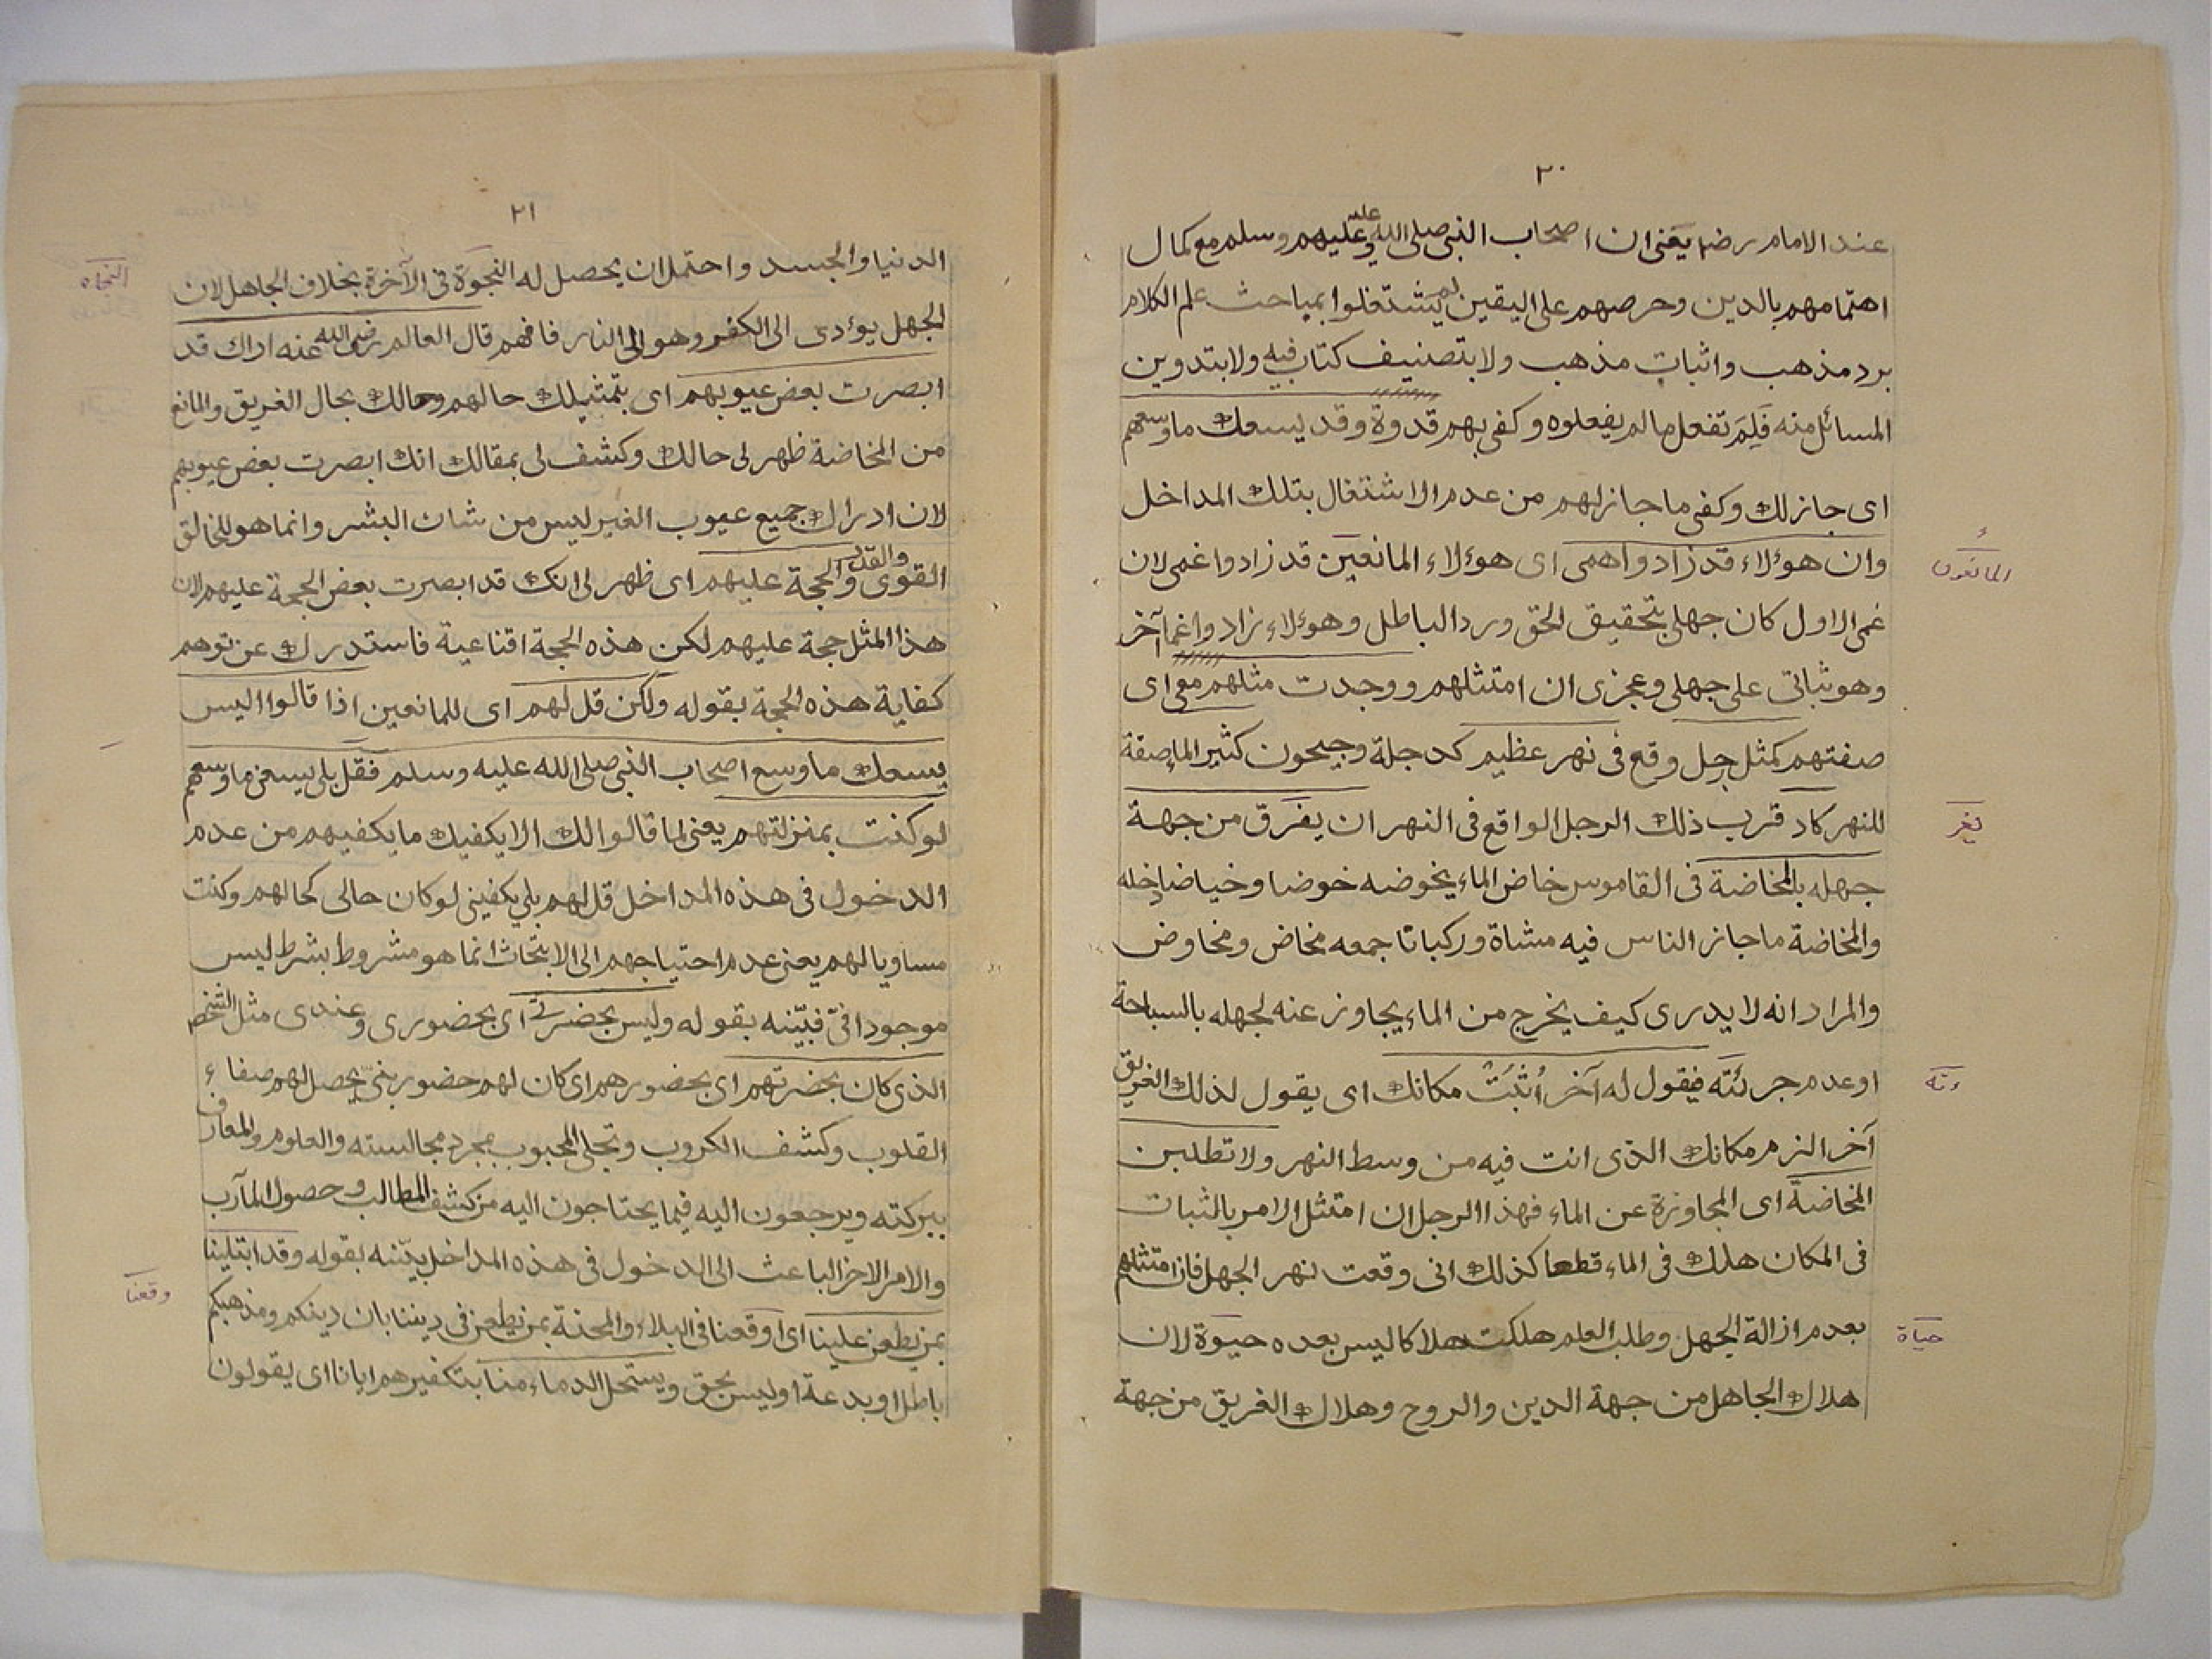 ٢٠
عند الامام رضى يعنى ان اصحاب النبى صلى الله عليه وعليهم وسلم مع كمال
اهتمامهم بالدين وحرصهم على اليقين لم يشتغلوا بمباحث علم الكلام
برد مذهب واثبات مذهب ولا بتصنيف كتاب فيه ولا بتدوين
المسائل منه فَلِمَ تفعل ما لم يفعلوه وكفى بهم قدوة وقد يسعك ما وسعهم
اى جاز لك وكفى ما جاز لهم من عدم الاشتغال بتلك المداخل
وان هؤلاء قد زادوا همى اى هؤلاء المانعين قد زادوا غمى لان
غمى الاول كان جهلى بتحقيق الحق ورد الباطل وهؤلاء زادوا غما آخر
وهو ثباتى على جهلى وعجزى ان امتثلهم ووجدت مثلهم معى اى
صفتهم كمثل رجل وقع فى نهر عظيم كدجلة وجيحون كثير الماء صفة
للنهر كاد قرب ذلك الرجل الواقع فى النهر ان يغرق من جهة
جهله بالمخاضة فى القاموس خاض الماء يخوضه خوضا وخياضا دخله
والمخاضة ما جاز الناس فيه مشاة وركبانا جمعه مخاض ومخاوض
والمراد انه لا يدرى كيف يخرج من الماء يجاوز عنه لجهله بالسباحة
او عدم جرئته فيقول له آخر أثبت مكانك اى يقول لذلك الغريق
آخر الزم مكانك الذى انت فيه من وسط النهر ولا تطلبن
المخاضة اى المجاوزة عن الماء فهذا الرجل ان امتثل الامر بالثبات
فى المكان هلك فى الماء قطعا كذلك انى وقعت نهر الجهل فان امتثلهم
بعدم ازالة الجهل وطلب العلم هلكت هلاكا ليس بعده حيوة لان
هلاك الجاهل من جهة الدين والروح وهلاك الغريق من جهة
المانعون
يغر
ئته
حياة
٢١
الدنيا والجسد واحتمل ان يحصل له النجوة فى الآخرة بخلاف الجاهل لان
الجهل يؤدى الى الكفر وهو الى النار فافهم قال العالم رضى الله عنه اراك قد
ابصرت بعض عيوبهم اى بتمثيلك حالهم وحالك بحال الغريق والمانع
من المخاضة ظهر لى حالك وكشف لى بمقالك انك ابصرت بعض عيوبهم
لان ادراك جميع عيوب الغير ليس من شان البشر وانما هو للخالق
القوى والقدر والحجة عليهم اى ظهر لى انك قد ابصرت بعض الحجة عليهم لان
هذا المثل حجة عليهم لكن هذه الحجة اقناعية فاستدرك عن توهم
كفاية هذه الحجة بقوله ولكن قل لهم اى للمانعين اذا قالوا اليس
يسعك ما وسع اصحاب النبى صلى الله عليه وسلم فقل بلى يسعنى ما وسعهم
لو كنت بمنزلتهم يعنى لما قالوا لك الا يكفيك ما يكفيهم من عدم
الدخول فى هذه المداخل قل لهم بلى يكفينى لو كان حالى كحالهم وكنت
مساويا لهم يعنى عدم احتياجهم الى الابتحاث انما هو مشروط بشرط ليس
موجودا فىّ فبيّنه بقوله وليس بحضرتى اى بحضورى وعندى مثل الشخص
الذى كان بحضرتهم اى بحضورهم اى كان لهم حضور بنىّ يحصل لهم صفاء
القلوب وكشف الكروب وتجلى المحبوب بمجرد مجالسته والعلوم والمعارف
ببركته ويرجعون اليه فيما يحتاجون اليه من كشف المطالب وحصول المآرب
والامر الاخر الباعث الى الدخول فى هذه المداخل بيّنه بقوله وقد ابتلينا
بمن يطعن علينا اى اوقعنا فى البلاء والمحنة بمن يطعن فى ديننا بان دينكم ومذهبكم
باطل او بدعة او ليس بحق ويستحل الدماء منا بتكفيرهم ايانا اى يقولون
النجاه
وقعنا